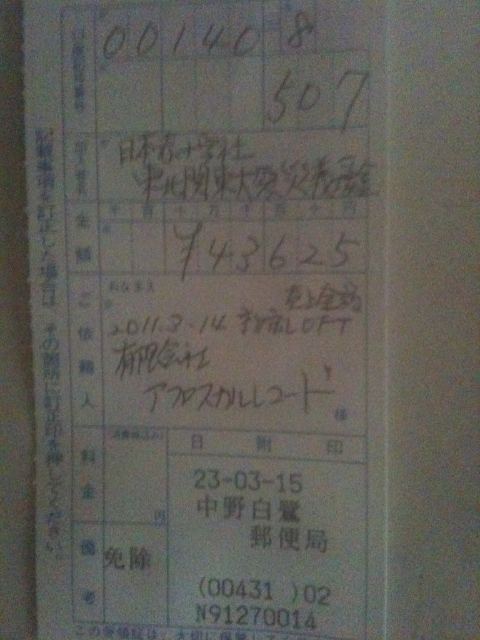 00140 8
507
加入者名
日本赤十字社
東北関東大震災義援金
千 百 十 万 千 百 十 円
金額
¥43625
ご依頼人
おなまえ
売上全額
2011.3.14. 新宿LOFT
有限会社
アフロスカルレコード
様
料金
(消費税込み)
円
日 附 印
23-03-15
中野白鷺
郵便局
備考
免除
(00431 )02
N91270014
記載事項を訂正した場合は、その箇所に訂正印を押してください。
この受領証は、大切に保管して